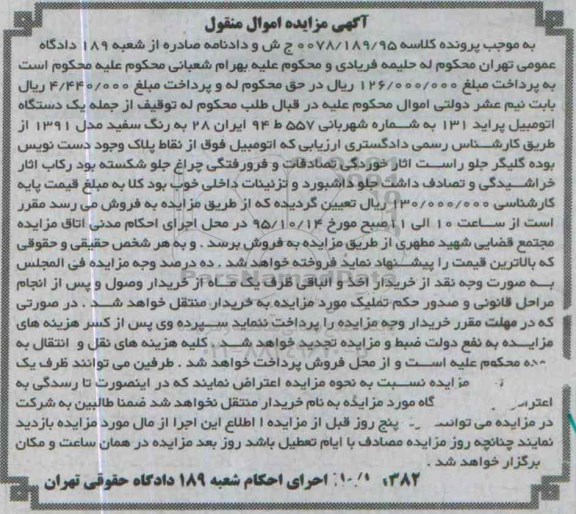 آگهی مزایده اموال منقول
به موجب پرونده کلاسه ۰۰۷۸/۱۸۹/۹۵ ج ش و دادنامه صادره از شعبه ۱۸۹ دادگاه
عمومی تهران محکوم له حلیمه فریادی و محکوم علیه بهرام شعبانی محکوم علیه محکوم است
به پرداخت مبلغ ۱۲۶/۰۰۰/۰۰۰ ریال در حق محکوم له و پرداخت مبلغ ۴/۴۴۰/۰۰۰ ریال
بابت نیم عشر دولتی اموال محکوم علیه در قبال طلب محکوم له توقیف از جمله یک دستگاه
اتومبیل پراید ۱۳۱ به شماره شهربانی ۵۵۷ ط ۹۴ ایران ۲۸ به رنگ سفید مدل ۱۳۹۱ از
طریق کارشناس رسمی دادگستری ارزیابی که اتومبیل فوق از نقاط پلاک وجود دست نویس
بوده گلیگر جلو راست اثار خوردگی تصادفات و فرورفتگی چراغ جلو شکسته بود رکاب اثار
خراشیدگی و تصادف داشت جلو داشبورد و تزئینات داخلی خوب بود کلا به مبلغ قیمت پایه
کارشناسی ۱۳۰/۰۰۰/۰۰۰ ریال تعیین گردیده که از طریق مزایده به فروش می رسد مقرر
است از ساعت ۱۰ الی ۱۱ صبح مورخ ۹۵/۱۰/۱۴ در محل اجرای احکام مدنی اتاق مزایده
مجتمع قضایی شهید مطهری از طریق مزایده به فروش برسد . و به هر شخص حقیقی و حقوقی
که بالاترین قیمت را پیشنهاد نماید فروخته خواهد شد . ده درصد وجه مزایده فی المجلس
به صورت وجه نقد از خریدار اخذ و الباقی ظرف یک ماه از خریدار وصول و پس از انجام
مراحل قانونی و صدور حکم تملیک مورد مزایده به خریدار منتقل خواهد شد . در صورتی
که در مهلت مقرر خریدار وجه مزایده را پرداخت ننماید سپرده وی پس از کسر هزینه های
مزایده به نفع دولت ضبط و مزایده تجدید خواهد شد . کلیه هزینه های نقل و انتقال به
محکوم علیه است و از محل فروش پرداخت خواهد شد . طرفین می توانند ظرف یک
مزایده نسبت به نحوه مزایده اعتراض نمایند که در اینصورت تا رسدگی به
گاه مورد مزایده به نام خریدار منتقل نخواهد شد ضمنا طالبین به شرکت
در مزایده می پنج روز قبل از مزایده ا اطلاع این اجرا از مال مورد مزایده بازدید
نمایند چنانچه روز مزایده مصادف با ایام تعطیل باشد روز بعد مزایده در همان ساعت و مکان
برگزار خواهد شد .
اجرای احکام شعبه ۱۸۹ دادگاه حقوقی تهران
ParsNamadData